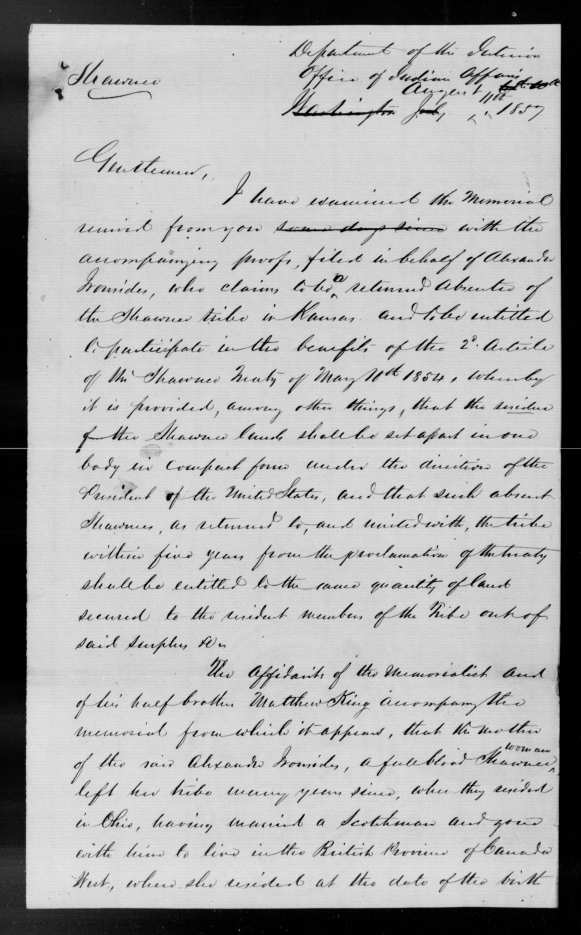 Department of the Interior
Office of Indian Affairs
Shawnee
August 11th
Washington July 1857
Gentlemen,
I have examined the Memorial
received from you some days since with the
accompanying proofs, filed in behalf of Alexander
Ironsides, who claims to be a returned absentee of
the Shawnee tribe in Kansas. and to be entitled
to participate in the benefits of the 2d. Article
of the Shawnee Treaty of May 10th 1854, whereby
it is provided, among other things, that the residue
of the Shawnee lands shall be set apart in one
body in compact form under the direction of the
President of the United States, and that such absent
Shawnees, as returned to, and united with, the tribe
within five years from the proclamation of the treaty
shall be entitled to the same quantity of land
secured to the resident members of the Tribe out of
said surplus &c
The Affidavits of the Memorialist and
of his half brother Matthew King accompany the
memorial from which it appears, that the mother
of the said Alexander Ironsides, a full blood Shawnee woman,
left her tribe many years since, when they resided
in Ohio, having married a Scotchman and gone
with him to live in the British Province of Canada
West, where she resided at the date of the birth